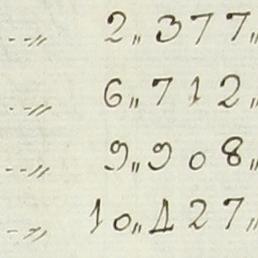 --〃 2〃377〃
--〃 6〃712〃
--〃 9〃908〃
--〃 10〃427〃